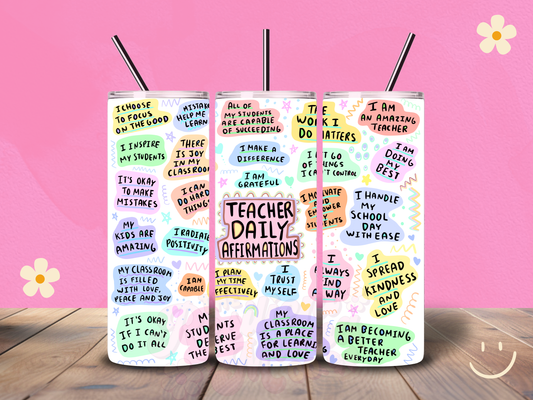 I CHOOSE
TO FOCUS
ON THE GOOD
MISTAK
HELP ME
LEARN
I INSPIRE
MY STUDENTS
THERE
IS JOY
IN MY
CLASSROOM
IT'S OKAY
TO MAKE
MISTAKES
I CAN
DO HARD
THINGS
MY
KIDS ARE
AMAZING
I RADIATE
POSITIVITY
MY CLASSROOM
IS FILLED
WITH LOVE,
PEACE AND JOY
I AM
CAPABLE
IT'S OKAY
IF I CAN'T
DO IT ALL
M
STUD
DE
THE
ALL OF
MY STUDENTS
ARE CAPABLE
OF SUCCEEDING
THE
WORK I
DO MATTERS
I MAKE A
DIFFERENCE
I LET GO
OF THINGS
I CAN'T CONTROL
I AM
GRATEFUL
TEACHER
DAILY
AFFIRMATIONS
I MOTIVATE
AND
EMPOWER
MY
STUDENTS
I PLAN
MY TIME
EFFECTIVELY
I
TRUST
MYSELF
NTS
ERVE
EST
MY
CLASSROOM
IS A PLACE
FOR LEARNING
AND LOVE
I AM
AN AMAZING
TEACHER
I AM
DOING
MY
BEST
I HANDLE
MY
SCHOOL
DAY
WITH EASE
I
LWAYS
IND
WAY
I
SPREAD
KINDNESS
AND
LOVE
I AM BECOMING
A BETTER
TEACHER
EVERYDAY